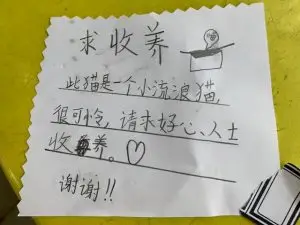 求收养
此猫是一个小流浪猫,
很可怜,请求好心人士
收养。
谢谢!!